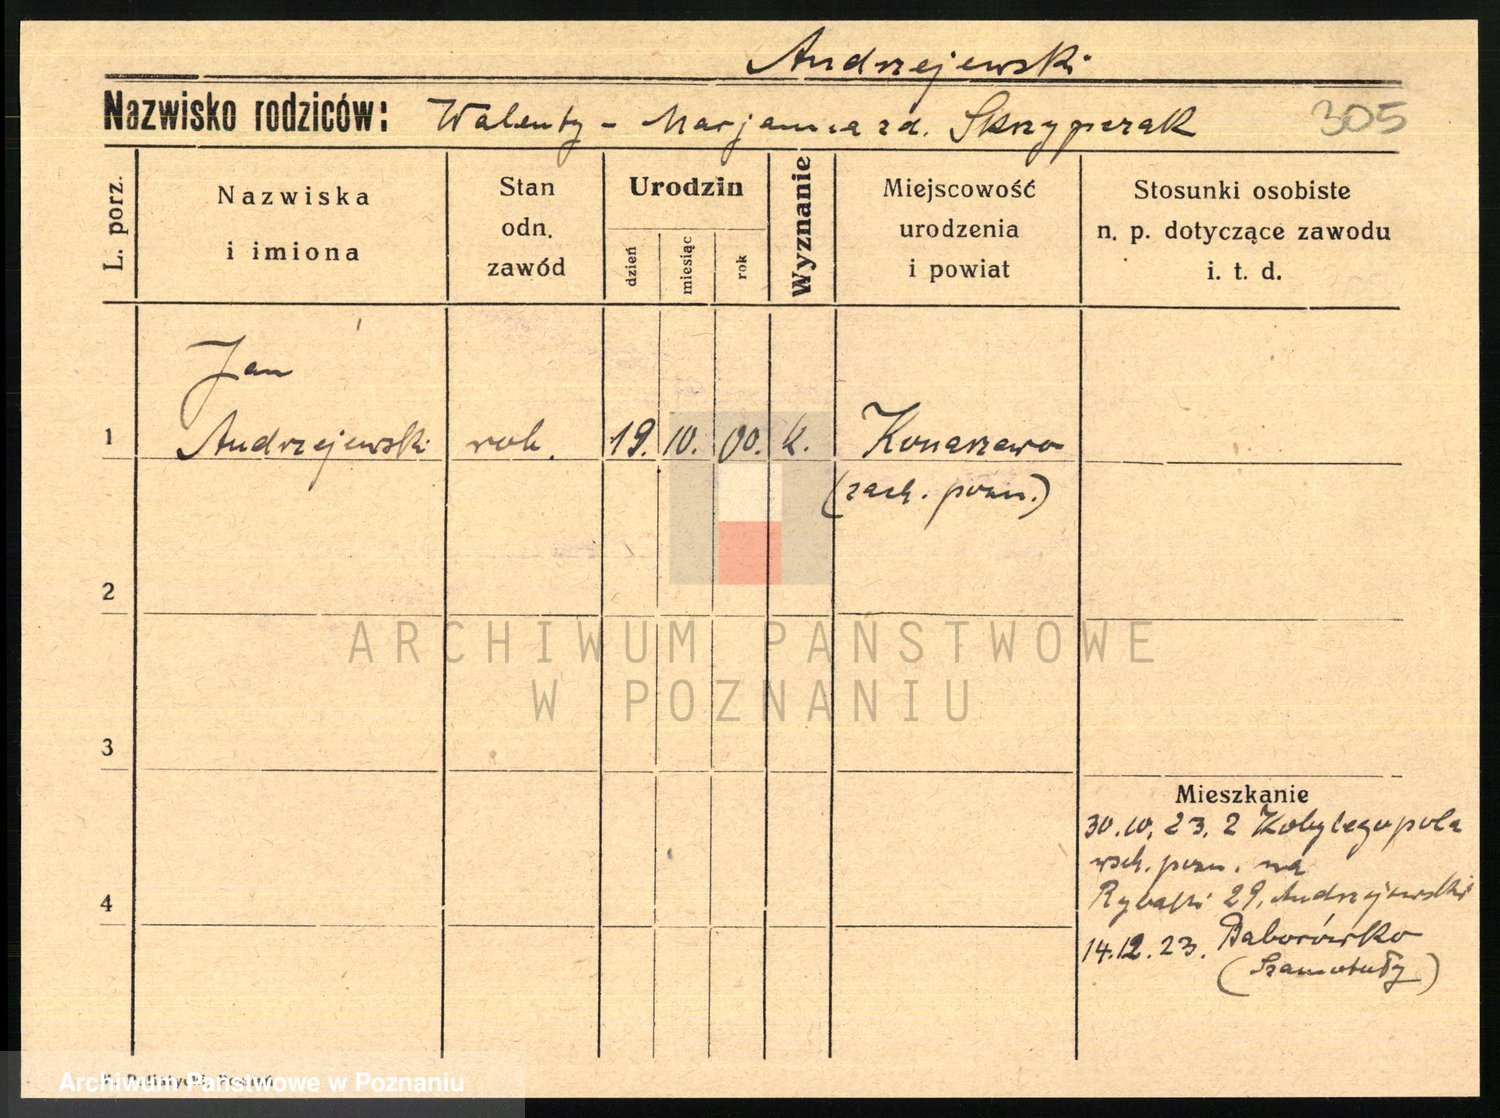 Andrzejewski
Nazwisko rodziców: Walenty - Marjanna zd. Skrzypczak 305
L. porz.
Nazwiska
i imiona
Stan
odn.
zawód
Urodzin
dzień
miesiąc
rok
Wyznanie
Miejscowość
urodzenia
i powiat
Stosunki osobiste
n. p. dotyczące zawodu
i. t. d.
Jan
1 Andrzejewski rob. 19. 10. 00. k. Konarzewo
(zach. pozn.)
2
ARCHIWUM PAŃSTWOWE
W POZNANIU
3
Mieszkanie
30.10.23. z Kobylegopola
wsch. pozn. na
4 Rybaki 29. Andrzejewski
14.12.23. Baborówko
(Szamotuły)
Archiwum Państwowe w Poznaniu